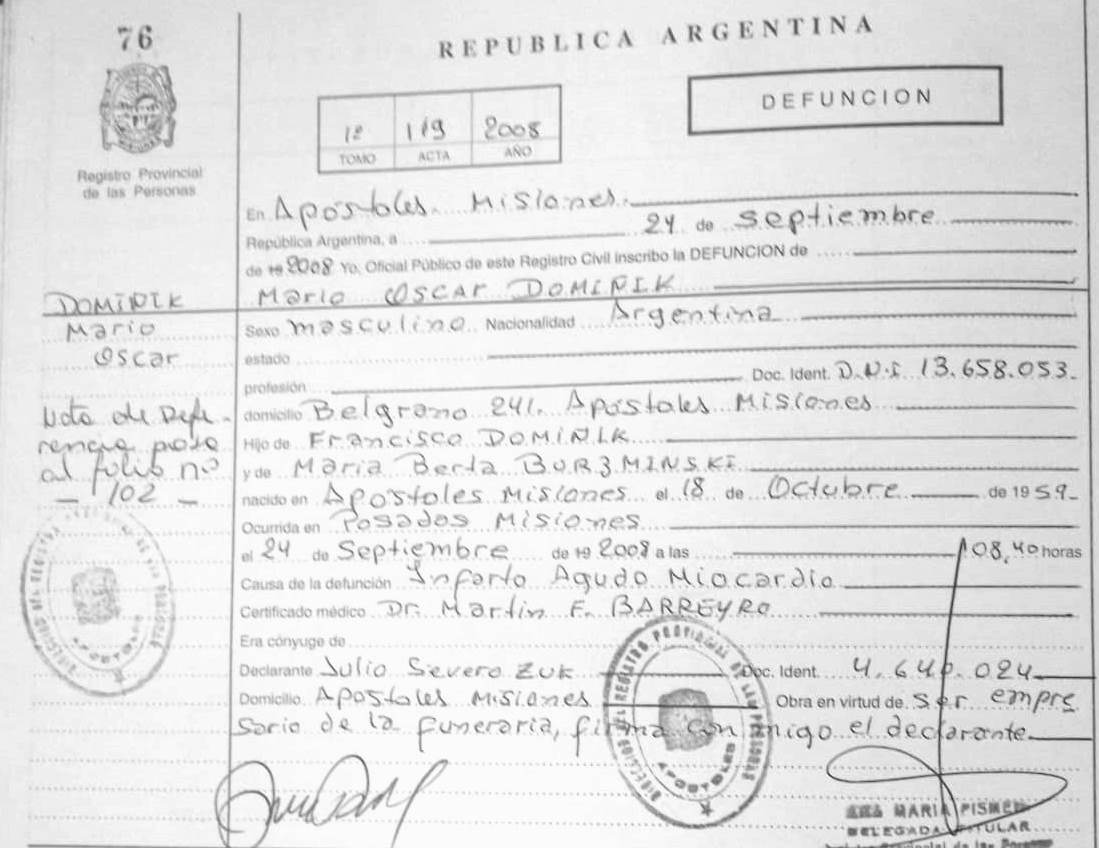 76
REPUBLICA ARGENTINA
DEFUNCION
1º 119 2008
TOMO ACTA AÑO
Registro Provincial
de las Personas
En Apóstoles. Misiones.
República Argentina, a 24 de septiembre
de 19 2008 Yo, Oficial Público de este Registro Civil inscribo la DEFUNCION de
Mario OSCAR DOMINIK
DOMINIK
Mario
Oscar
Sexo masculino Nacionalidad Argentina
estado
profesión Doc. Ident. D.N.I. 13.658.053.
domicilio Belgrano 241. Apóstoles Misiones
Hijo de Francisco DOMINIK
y de Maria Berta BORZMINSKI
nacido en Apostoles Misiones el 18 de Octubre de 1959.
Nota de Refe-
rencia pase
al folio nº
- 102 -
Ocurrida en Posadas Misiones
el 24 de Septiembre de 19 2008 a las 08,40 horas
Causa de la defunción Infarto Agudo Miocardio
Certificado médico Dr. Martin F. BARREYRO
Era cónyuge de
Declarante Julio Severo ZUK Doc. Ident. 4.640.024
Domicilio Apostoles Misiones Obra en virtud de ser empre
sario de la funeraria, firma conmigo el declarante
APOSTOLES
DIRECCION DEL REGISTRO PROVINCIAL DE LAS PERSONAS
APOSTOLES
ANA MARIA
DELEGADA TITULAR